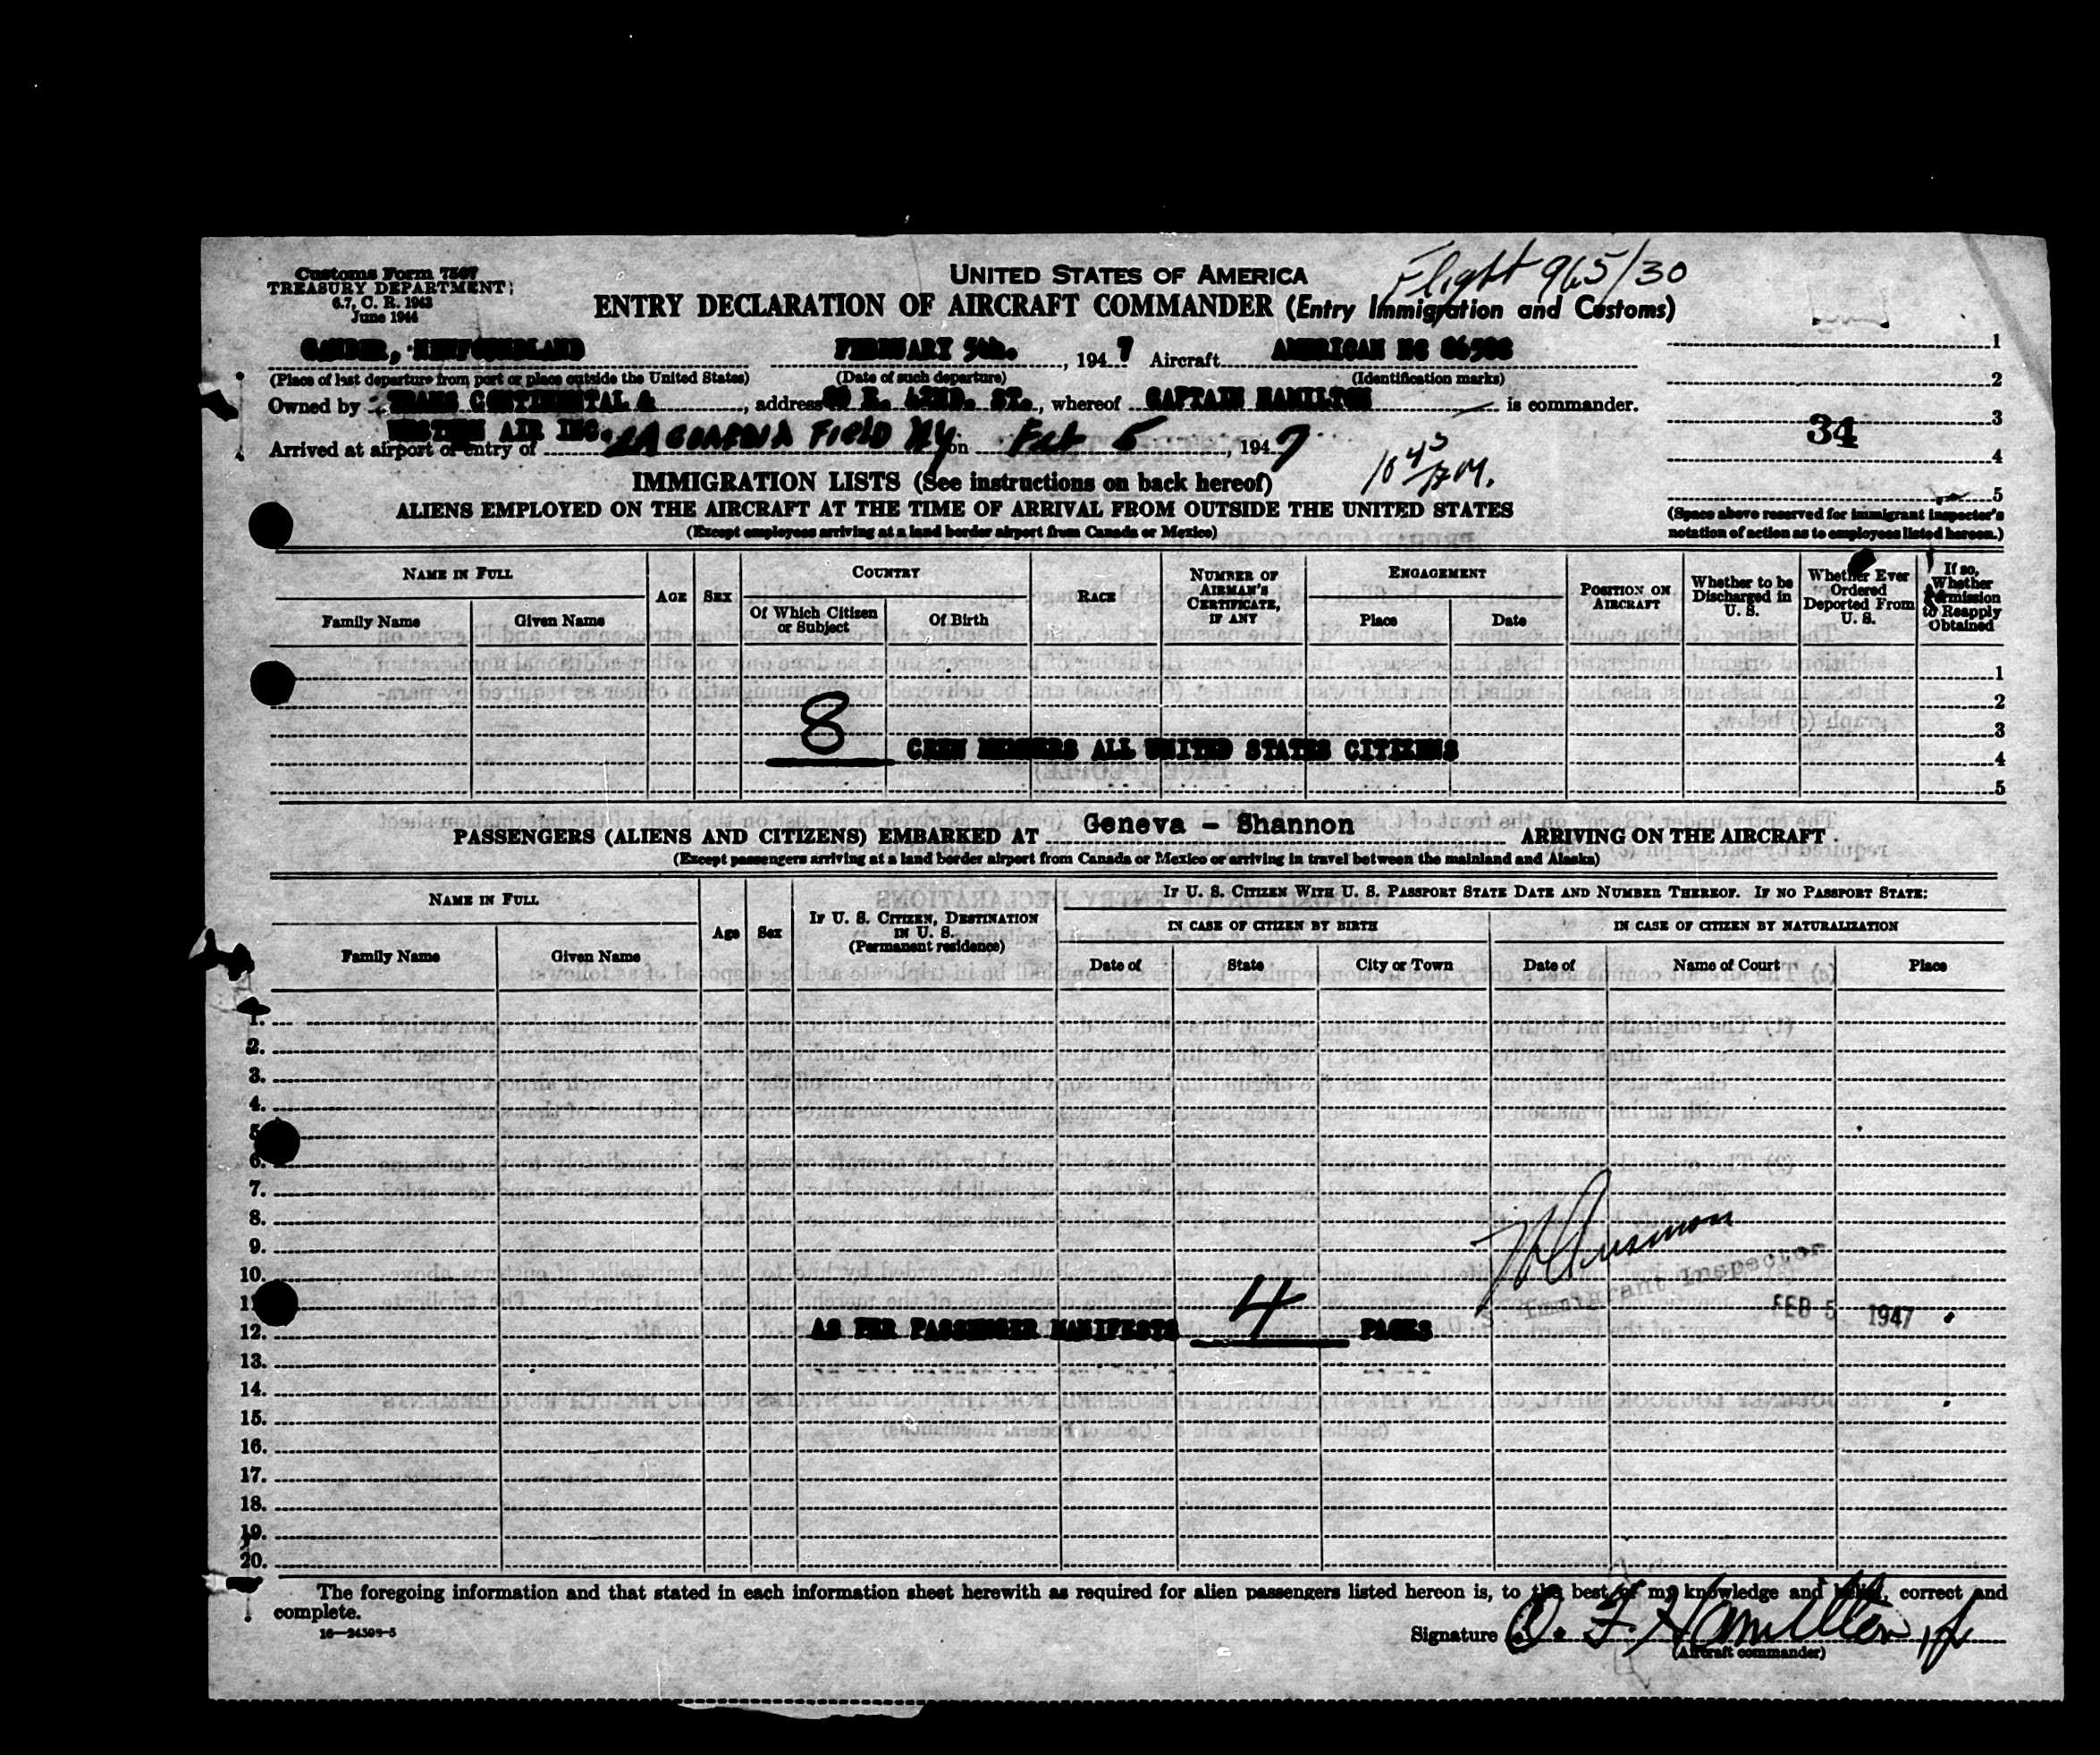 Customs Form 7507
TREASURY DEPARTMENT
6.7, C. R. 1943
June 1944
UNITED STATES OF AMERICA
Flight 965/30
ENTRY DECLARATION OF AIRCRAFT COMMANDER (Entry Immigration and Customs)
GANDER, NEWFOUNDLAND FEBRUARY 5th. , 1947 Aircraft AMERICAN NC 1
(Place of last departure from port or place outside the United States) (Date of such departure) (Identification marks) 2
Owned by TRANS CONTINENTAL & , address E. 42ND. ST., whereof CAPTAIN HAMILTON is commander.
WESTERN AIR INC. 3
34
Arrived at airport of entry of LA GUARDIA FIELD NY on Feb 5 , 1947 4
10 45 AM.
IMMIGRATION LISTS (See instructions on back hereof)
5
ALIENS EMPLOYED ON THE AIRCRAFT AT THE TIME OF ARRIVAL FROM OUTSIDE THE UNITED STATES
(Except employees arriving at a land border airport from Canada or Mexico)
(Space above reserved for immigrant inspector's
notation of action as to employees listed hereon.)
NAME IN FULL
Family Name Given Name
AGE SEX
COUNTRY
Of Which Citizen or Subject Of Birth
RACE
NUMBER OF AIRMAN'S CERTIFICATE, IF ANY
ENGAGEMENT
Place Date
POSITION ON AIRCRAFT
Whether to be Discharged in U. S.
Whether Ever Ordered Deported From U. S.
If so, Whether Permission to Reapply Obtained
1
2
3
8 CREW MEMBERS ALL UNITED STATES CITIZENS
4
5
PASSENGERS (ALIENS AND CITIZENS) EMBARKED AT Geneva - Shannon ARRIVING ON THE AIRCRAFT
(Except passengers arriving at a land border airport from Canada or Mexico or arriving in travel between the mainland and Alaska)
NAME IN FULL
Family Name Given Name
Age Sex
IF U. S. CITIZEN, DESTINATION IN U. S.
(Permanent residence)
IF U. S. CITIZEN WITH U. S. PASSPORT STATE DATE AND NUMBER THEREOF. IF NO PASSPORT STATE:
IN CASE OF CITIZEN BY BIRTH IN CASE OF CITIZEN BY NATURALIZATION
Date of State City or Town Date of Name of Court Place
1.
2.
3.
4.
5
6.
7.
8.
9.
10.
Immigrant Inspector
11
FEB 5 1947
12. AS PER PASSENGER MANIFESTS 4 PAGES
13.
14.
15.
16.
17.
18.
19.
20.
The foregoing information and that stated in each information sheet herewith as required for alien passengers listed hereon is, to the best of my knowledge and belief, correct and
complete.
Signature O. F. Hamilton Jr
(Aircraft commander)